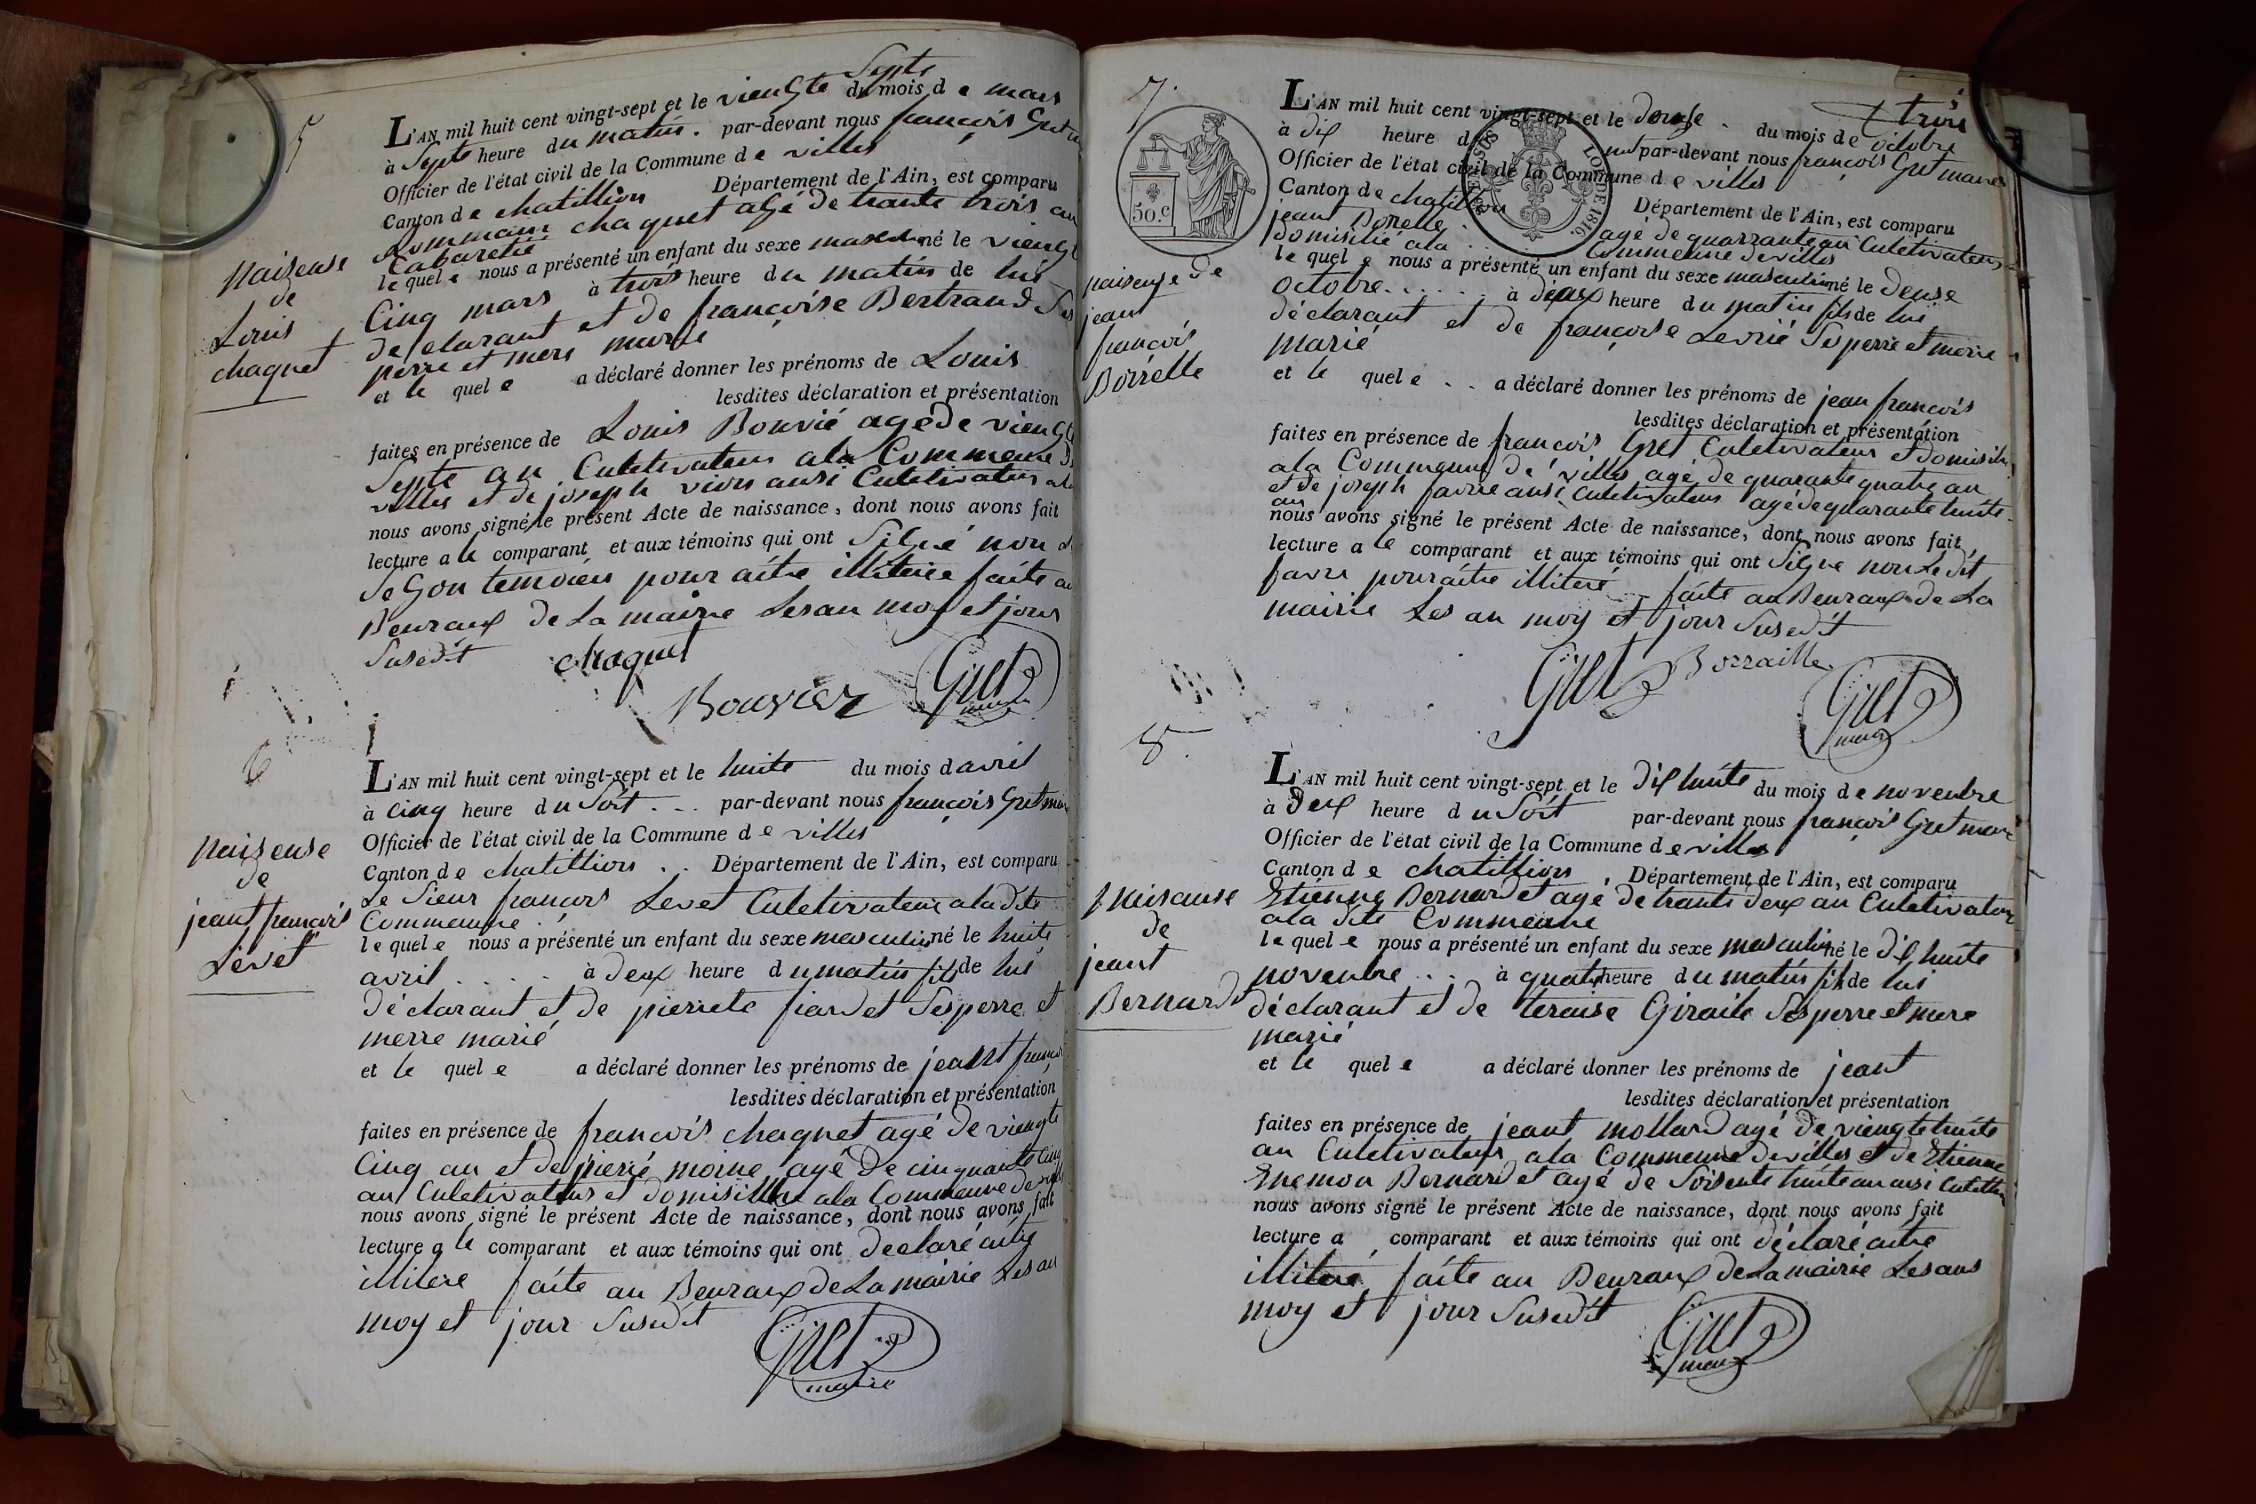 5
Naiseuse
de
Louis
chaquet
Septe
L'AN mil huit cent vingt-sept et le viengte du mois de mars
à Septe heure du matin. par-devant nous françois Gret
Officier de l'état civil de la Commune de villes
Canton de chatillion Département de l'Ain, est comparu
chaquet agé de trante trois an
Cabaretié
lequel e nous a présenté un enfant du sexe masculin né le viengt
Cinq mars à trois heure du matin de lui
declarant et de françoise Bertrand Ses
perre et mere marié
et le quel e a déclaré donner les prénoms de Louis
lesdites déclaration et présentation
faites en présence de Louis Bouvié agé de viengt
Septe an Culetivateur ala Commeune de
villes et de joseph ausi Culetivateur ala
nous avons signé le présent Acte de naissance, dont nous avons fait
lecture a le comparant et aux témoins qui ont Signé non le
Segon temoien pour aitre illiterée faite au
Beuraux de La mairie Les an moy et jour
Susedit chaquet
Bouvier Gret
maire
6
Naiseuse
de
jeant françois
Levet
L'AN mil huit cent vingt-sept et le huite du mois d avril
à cinq heure du Soit par-devant nous françois Gret maire
Officier de l'état civil de la Commune de villes
Canton de chatillion Département de l'Ain, est comparu
Le Sieur françois Levet Culetivateur ala dite
Commeune
lequel e nous a présenté un enfant du sexe masculin né le huite
avril à deux heure du matin fils de lui
déclarant et de pierrete fiardet Ses perre et
merre marié
et le quel e a déclaré donner les prénoms de jeant françois
lesdites déclaration et présentation
faites en présence de françois chaquet agé de viengte
Cinq an et de pierré moine agé de cinquante Cinq
an Culetivateurs et domisillié ala Commeune de villes
nous avons signé le présent Acte de naissance, dont nous avons fait
lecture a le comparant et aux témoins qui ont declaré aitre
illitere faite au Beuraux de La mairie Les an
moy et jour Susedit Gret
maire
7.
50.c
LOI DE 1816
naiseuse de
jeant
françois
Borrelle
trois
L'AN mil huit cent vingt-sept et le douse du mois de octobre
à dix heure du par-devant nous françois Gret maire
Officier de l'état civil de la Commune de villes
Canton de chatillion Département de l'Ain, est comparu
jeant Borelle agé de quarrante an Culetivateur
domisilié ala Commeune de villes
lequel e nous a présenté un enfant du sexe masculin né le deuse
octobre à deux heure du matin fils de lui
déclarant et de françoise Levrié Ses perre et merre
marié
et le quel e a déclaré donner les prénoms de jean françois
lesdites déclaration et présentation
faites en présence de françois Gret Culetivateur et domisilié
ala Commeune de villes agé de quarante quatre an
et de joseph favre ausi Culetivateur agé de quarante huite
an
nous avons signé le présent Acte de naissance, dont nous avons fait
lecture a le comparant et aux témoins qui ont Signe non Le dit
favre pour aitre illiteré faite au Beuraux de La
mairie Les an moy et jour Susedit
Gret Borraille
Gret
maire
8.
Naisause
de
jeant
Bernard
L'AN mil huit cent vingt-sept et le dix huite du mois de novenbre
à deux heure du Soit par-devant nous françois Gret maire
Officier de l'état civil de la Commune de villes
Canton de chatillion Département de l'Ain, est comparu
Etienne Bernard et agé de trante deux an Culetivateur
ala dite Commeune
lequel e nous a présenté un enfant du sexe masculin né le dix huite
novenbre à quatre heure du matin fils de lui
déclarant et de teraise Giraite Ses perre et mere
marié
et le quel e a déclaré donner les prénoms de jeant
lesdites déclaration et présentation
faites en présence de jeant mollard agé de viengte huite
an Culetivateur ala Commeune de villes et de Etienne
Enemon Bernard et agé de Soisente huite an ausi
nous avons signé le présent Acte de naissance, dont nous avons fait
lecture a comparant et aux témoins qui ont déclaré aitre
illiteré faite au Beuraux de La mairie Les ans
moy et jour Susedit Gret
maire